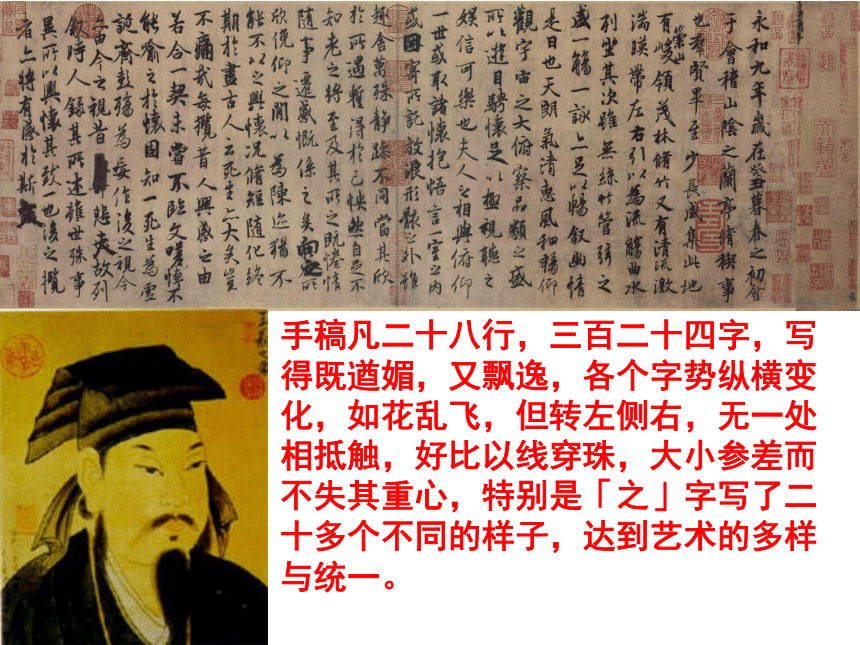 永和九年歲在癸丑暮春之初會
于會稽山陰之蘭亭脩稧事
也羣賢畢至少長咸集此地
有崇山峻領茂林脩竹又有清流激
湍暎帶左右引以為流觴曲水
列坐其次雖無絲竹管弦之
盛一觴一詠亦足以暢叙幽情
是日也天朗氣清惠風和暢仰
觀宇宙之大俯察品類之盛
所以遊目騁懷足以極視聽之
娛信可樂也夫人之相與俯仰
一世或取諸懷抱悟言一室之內
或因寄所託放浪形骸之外雖
趣舍萬殊靜躁不同當其欣
於所遇蹔得於己怏然自足不
知老之將至及其所之既惓情
隨事遷感慨係之矣向之所
欣俛仰之閒以為陳迹猶不
能不以之興懷況脩短隨化終
期於盡古人云死生亦大矣豈
不痛哉每攬昔人興感之由
若合一契未嘗不臨文嗟悼不
能喻之於懷固知一死生為虛
誕齊彭殤為妄作後之視今
亦由今之視昔悲夫故列
叙時人錄其所述雖世殊事
異所以興懷其致一也後之攬
者亦將有感於斯文
手稿凡二十八行，三百二十四字，写
得既遒媚，又飘逸，各个字势纵横变
化，如花乱飞，但转左侧右，无一处
相抵触，好比以线穿珠，大小参差而
不失其重心，特别是「之」字写了二
十多个不同的样子，达到艺术的多样
与统一。